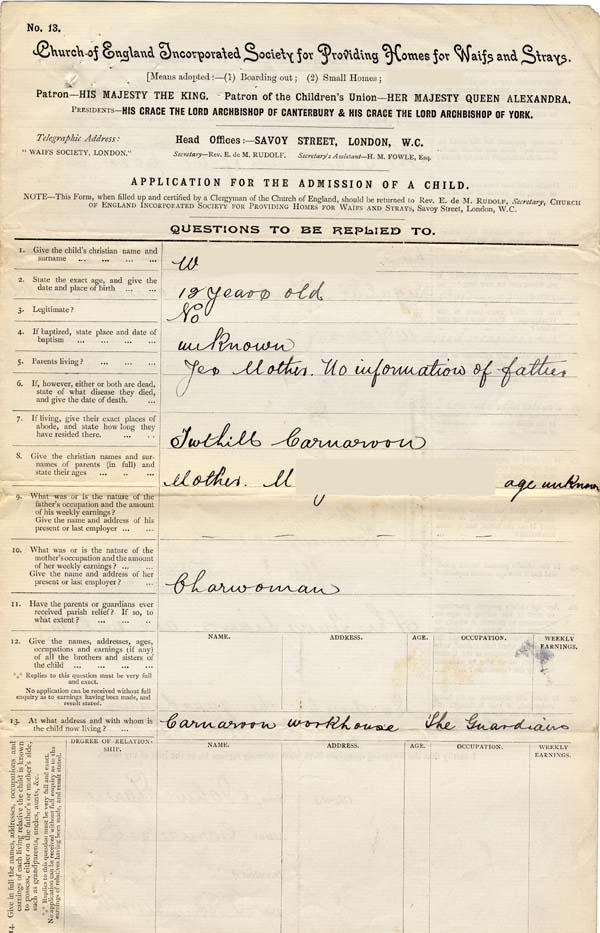 No. 13.
Church of England Incorporated Society for Providing Homes for Waifs and Strays.
[Means adopted:—(1) Boarding out; (2) Small Homes;
Patron—HIS MAJESTY THE KING. Patron of the Children's Union—HER MAJESTY QUEEN ALEXANDRA.
PRESIDENTS—HIS GRACE THE LORD ARCHBISHOP OF CANTERBURY & HIS GRACE THE LORD ARCHBISHOP OF YORK.
Telegraphic Address:
"WAIFS SOCIETY, LONDON."
Head Offices:—SAVOY STREET, LONDON, W.C.
Secretary—Rev. E. de M. RUDOLF. Secretary's Assistant—H. M. FOWLE, Esq.
APPLICATION FOR THE ADMISSION OF A CHILD.
NOTE—This Form, when filled up and certified by a Clergyman of the Church of England, should be returned to Rev. E. de M. RUDOLF, Secretary, CHURCH
OF ENGLAND INCORPORATED SOCIETY FOR PROVIDING HOMES FOR WAIFS AND STRAYS, Savoy Street, London, W.C.
QUESTIONS TO BE REPLIED TO.
1. Give the child's christian name and
surname ... ... ... ...
W
2. State the exact age, and give the
date and place of birth ... ...
12 years old
3. Legitimate?
No
4. If baptized, state place and date of
baptism ... ... ... ...
unknown
5. Parents living? ... ... ...
Yes Mother. No information of father
6. If, however, either or both are dead,
state of what disease they died,
and give the date of death. ...
7. If living, give their exact places of
abode, and state how long they
have resided there. ... ...
Twthill Carnarvon
8. Give the christian names and sur-
names of parents (in full) and
state their ages ... ... ...
Mother. M age unknown
9. What was or is the nature of the
father's occupation and the amount
of his weekly earnings?
Give the name and address of his
present or last employer ... ...
— — — — —
10. What was or is the nature of the
mother's occupation and the amount
of her weekly earnings? ... ...
Give the name and address of her
present or last employer? ...
Charwoman
11. Have the parents or guardians ever
received parish relief? If so, to
what extent? ... ... ...
12. Give the names, addresses, ages,
occupations and earnings (if any)
of all the brothers and sisters of
the child ... ... ... ...
*** Replies to this question must be very full
and exact.
No application can be received without full
enquiry as to earnings having been made, and
result stated.
NAME. ADDRESS. AGE. OCCUPATION. WEEKLY
EARNINGS.
13. At what address and with whom is
the child now living? ...
Carnarvon workhouse The Guardians
14. Give in full the names, addresses, occupations and
earnings of each living relative the child is known
to possess, either on the father's or mother's side,
such as grandparents, uncles, aunts, &c.
*** Replies to this question must be very full and exact.
No application can be received without full enquiry as to the
earnings of relatives having been made, and result stated.
DEGREE OF RELATION-
SHIP.
NAME. ADDRESS. AGE. OCCUPATION. WEEKLY
EARNINGS.